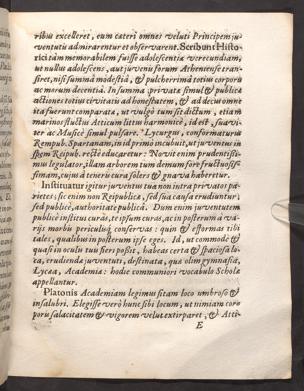 ribus excelleret, eum cæteri omnes veluti Principem ju-
ventutis admirarentur et observarent. Scribunt Histo-
rici tàm memorabilem fuisse adolescentiæ verecundiam,
ut nullus adolescens, aut juvenis forum Atheniense tran-
siret, nisi summâ modestiâ, & pulcherrimâ totius corporis
ac morum decentiâ. In summa: privatæ simul & publicæ
actiones totius civitatis ad honestatem, & ad decus omne
ita fuerunt comparatæ, ut vulgò tum sit dictum, etiam
marinos fluctus Atticum littus harmonicè, id est, suavi-
ter ac Musicè simul pulsare. Lycurgus, conformaturus
Rempub. Spartanam, in id primo incubuit, ut juventus in
spem Reipub. rectè educaretur: Novit enim prudentissi-
mus legulator, illam arborem tum demum fore fructuosis-
simam, cujus à teneris cura solers & gnava haberetur.
Instituatur igitur juventus tua non intra privatos pa-
rietes; sic enim non Reipublicæ, sed sua causa erudiuntur;
sed publicè, authoritate publicâ. Dum enim juventutem
publicè institui curas, te ipsum curas, ac in posterum à va-
rijs morbis periculisq; conservas: quin & efformas tibi
tales, qualibus in posterum ipse eges. Id, ut commodè &
quasi in oculo tuo fiers possit, habeas certa & spaciosa lo-
ca, erudiendæ juventuti, destinata, quæ olim gymnasia,
Lycea, Academiæ: hodie communiori vocabulo Scholæ
appellantur.
Platonis Academiam legimus sitam loco umbroso &
insalubri. Elegisse verò hunc sibi locum, ut nimiam cor-
poris salacitatem & vigorem velut extirparet, & Atti-
E